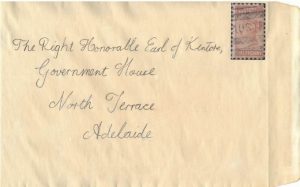 The Right Honorable Earl of Kintore,
Government House
North Terrace
Adelaide